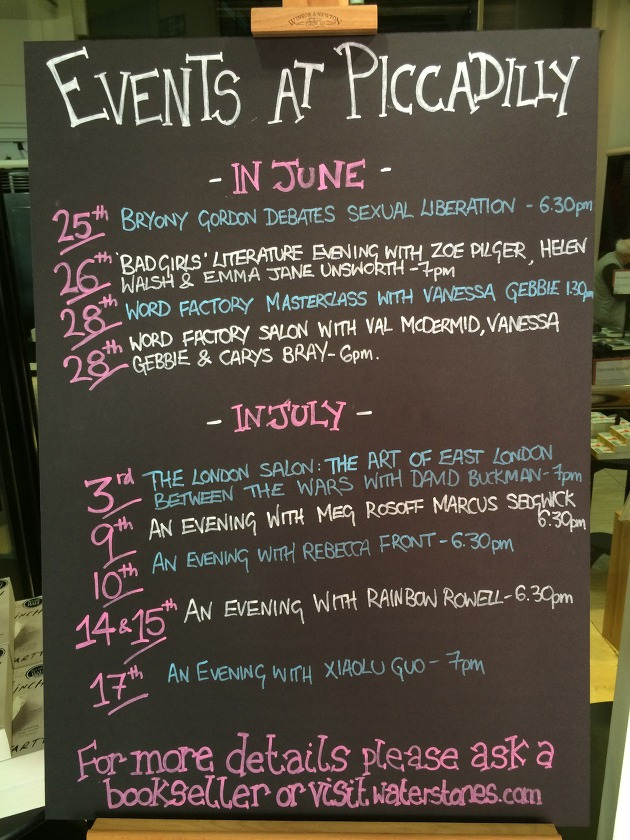 WINSOR & NEWTON
EVENTS AT PICCADILLY
- IN JUNE -
25th BRYONY GORDON DEBATES SEXUAL LIBERATION - 6.30pm
26th 'BAD GIRLS' LITERATURE EVENING WITH ZOE PILGER, HELEN
WALSH & EMMA JANE UNSWORTH - 7pm
28th WORD FACTORY MASTERCLASS WITH VANESSA GEBBIE 1.30pm
28th WORD FACTORY SALON WITH VAL MCDERMID, VANESSA
GEBBIE & CARYS BRAY - 6pm.
- IN JULY -
3rd THE LONDON SALON: THE ART OF EAST LONDON
BETWEEN THE WARS WITH DAVID BUCKMAN - 7pm
9th AN EVENING WITH MEG ROSOFF MARCUS SEDGWICK
6.30pm
10th AN EVENING WITH REBECCA FRONT - 6.30pm
14 & 15th AN EVENING WITH RAINBOW ROWELL - 6.30pm
17th AN EVENING WITH XIAOLU GUO - 7pm
For more details please ask a
bookseller or visit waterstones.com